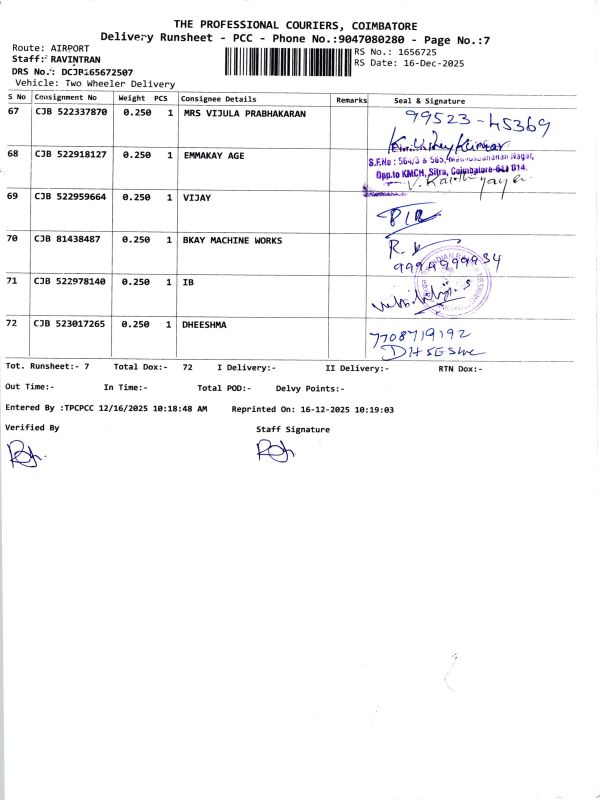 THE PROFESSIONAL COURIERS, COIMBATORE
Delivery Runsheet - PCC - Phone No.:9047080280 - Page No.:7
Route: AIRPORT
RS No.: 1656725
Staff: RAVINTRAN
RS Date: 16-Dec-2025
DRS No.: DCJR165672507
Vehicle: Two Wheeler Delivery
S No Consignment No Weight PCS Consignee Details Remarks Seal & Signature
67 CJB 522337870 0.250 1 MRS VIJULA PRABHAKARAN
99523-45369
68 CJB 522918127 0.250 1 EMMAKAY AGE
S.F.No : 564/3 & 565, Nagar,
Opp.to KMCH, Sitra, Coimbatore-641 014.
69 CJB 522959664 0.250 1 VIJAY
70 CJB 81438487 0.250 1 BKAY MACHINE WORKS
71 CJB 522978140 0.250 1 IB
72 CJB 523017265 0.250 1 DHEESHMA
7708719192
Tot. Runsheet:- 7 Total Dox:- 72 I Delivery:- II Delivery:- RTN Dox:-
Out Time:- In Time:- Total POD:- Delvy Points:-
Entered By :TPCPCC 12/16/2025 10:18:48 AM Reprinted On: 16-12-2025 10:19:03
Verified By Staff Signature